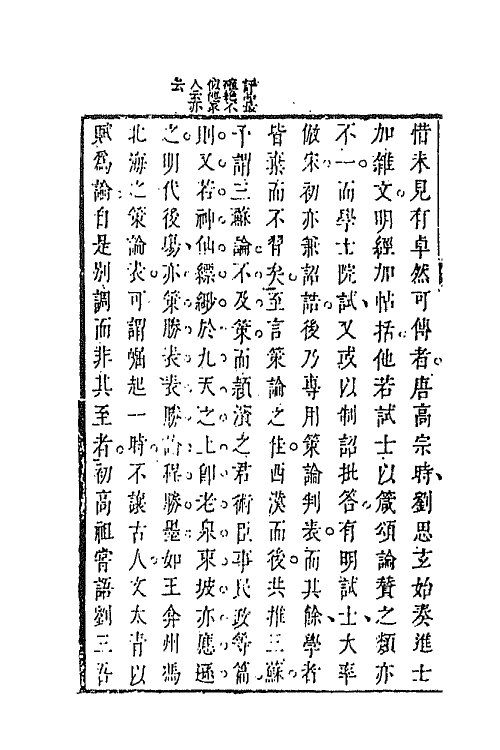 惜未見有卓然可傳者唐高宗時劉思玄始奏進士
加雜文明經加帖括他若試士以箴頌論贊之類亦
不一而學士院試又或以制詔批答有明試士大率
倣宋初亦兼詔誥後乃專用策論判表而其餘學者
皆棄而不習矣至言策論之佳西漢而後共推三蘇
予謂三蘇論不及策而潁濱之君術臣事民政等篇
則又若神仙縹緲於九天之上卽老泉東坡亦應遜
之明代後塲亦策勝表表勝論程勝墨如王弇州馮
北海之策論表可謂崛起一時不讓古人文太青以
賦爲論自是別調而非其至者初高祖嘗語劉三吾